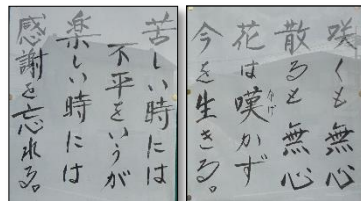 咲くも無心
散るも無心
花は嘆かず
今を生きる。
苦しい時には
不平をいうが
楽しい時には
感謝を忘れる。